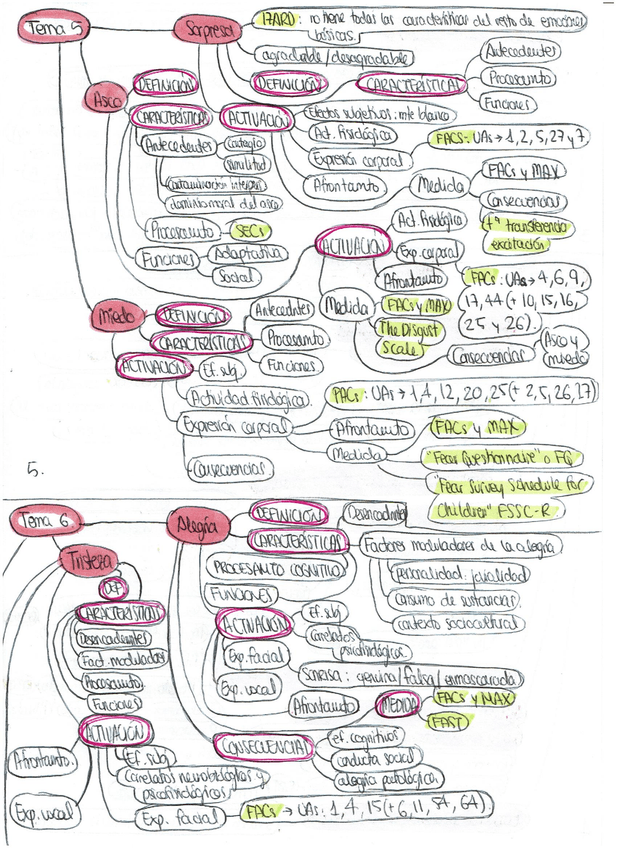 Tema 5
Sorpresa
IZARD: no tiene todas las características del resto de emociones
básicas.
agradable/desagradable
DEFINICIÓN
CARACTERÍSTICAS
Antecedentes
Procesamto
Funciones
ACTIVACIÓN
Efectos subjetivos: mte blanco
Act. fisiológica
Expresión corporal
FACS: UAs → 1, 2, 5, 27 y 7
Afrontamto
Medida
FACS y MAX
Consecuencias
tª transferencia
excitación
Asco
DEFINICIÓN
CARACTERÍSTICAS
Antecedentes
contagio
similitud
Contaminación interpers
dominio moral del asco
Procesamto
SECs
Funciones
Adaptativa
Social
ACTIVACIÓN
Act. fisiológica
Exp. corporal
FACs: UAs → 4, 6, 9,
17, 44 (+ 10, 15, 16,
25 y 26).
Afrontamto
Medida
FACS y MAX
The Disgust
Scale
Consecuencias
Asco y
miedo
Miedo
DEFINICIÓN
CARACTERÍSTICAS
Antecedentes
Procesamto
Funciones
ACTIVACIÓN
Ef. subj.
Actividad fisiológica.
Expresión corporal
FACs: UAs → 1, 4, 12, 20, 25 (+ 2, 5, 26, 27)
Afrontamto
Medida
FACs y MAX
"Fear Questionnaire" o FQ
"Fear Survey Schedule for
Children" FSSC-R
Consecuencias
5.
Tema 6
Alegría
DEFINICIÓN
CARACTERÍSTICAS
Desencadntes
Factores moduladores de la alegría
personalidad: jovialidad
consumo de sustancias.
contexto sociocultural
PROCESAMTO COGNITIVO
FUNCIONES
ACTIVACIÓN
Ef. subj
Correlados
psicofisiológicos
Exp. facial
Sonrisa: genuina/falsa/enmascarada
Exp. vocal
Afrontamto
MEDIDA
FACs y MAX
FAST
CONSECUENCIAS
ef. cognitivos
conducta social
alegría patológica
Tristeza
DEF
CARACTERÍSTICAS
Desencadenantes
Fact. moduladores
Procesamto
Funciones
ACTIVACIÓN
Ef. subj
Correlados neurobiológicos y
psicofisiológicos
Exp. facial
FACs → UAs: 1, 4, 15 (+ 6, 11, 54, 64)
Afrontamto.
Exp. vocal